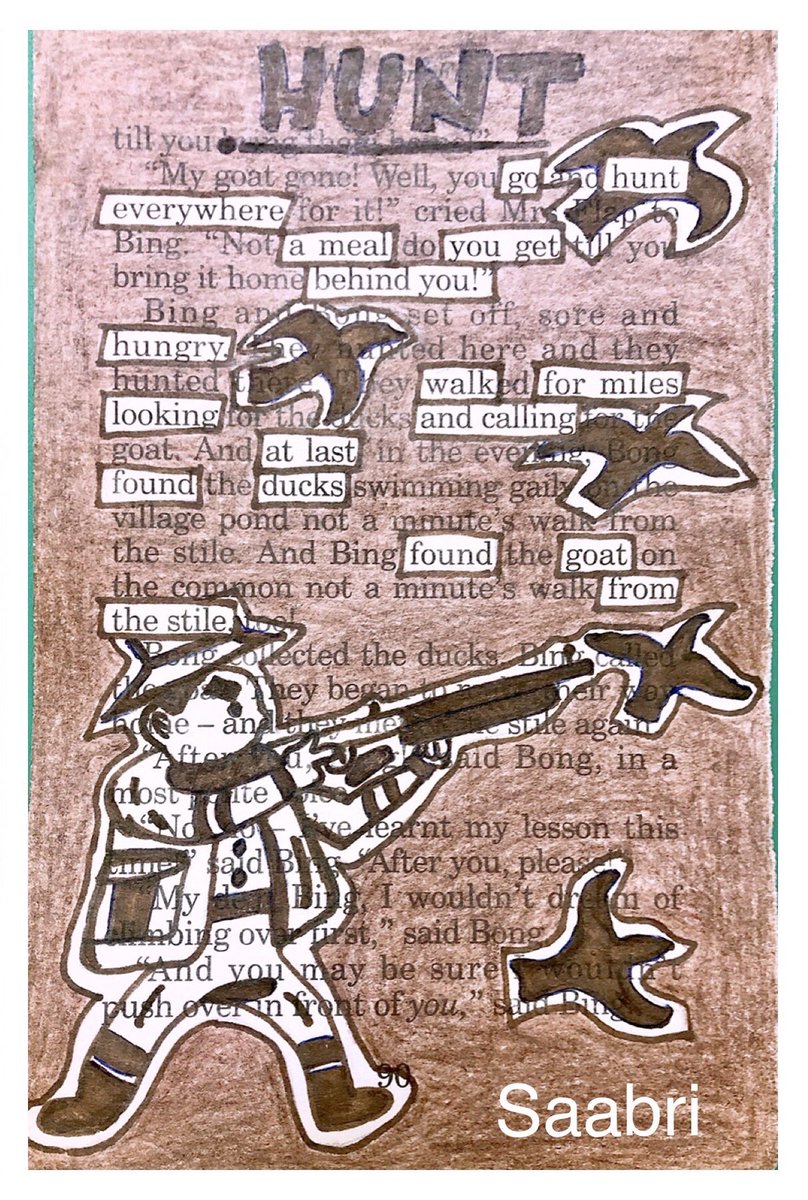 HUNT
till you bring them home!"
"My goat gone! Well, you go and hunt
everywhere for it!" cried Mrs Flap to
Bing. "Not a meal do you get till you
bring it home behind you!"
Bing and Bong set off, sore and
hungry. They hunted here and they
hunted there. They walked for miles
looking for the ducks and calling for the
goat. And at last in the evening, Bong
found the ducks swimming gaily on the
village pond not a minute's walk from
the stile. And Bing found the goat on
the common not a minute's walk from
the stile, too!
Bong collected the ducks. Bing called
the goat. They began to make their way
home – and they met at the stile again
"After you, Bing," said Bong, in a
most polite voice.
"No, no – I've learnt my lesson this
time!" said Bing. "After you, please!
"My dear Bing, I wouldn't dream of
climbing over first," said Bong.
"And you may be sure I wouldn't
push over in front of you," said Bing.
90
Saabri